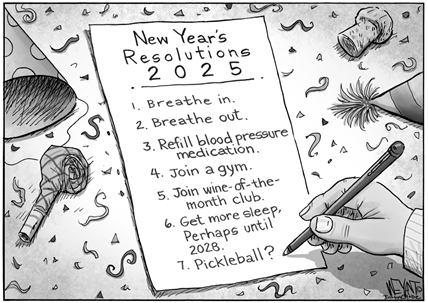 New Year's
Resolutions
2025
1. Breathe in.
2. Breathe out.
3. Refill blood pressure
medication.
4. Join a gym.
5. Join wine-of-the-
month club.
6. Get more sleep,
Perhaps until
2028.
7. Pickleball?
WEYANT